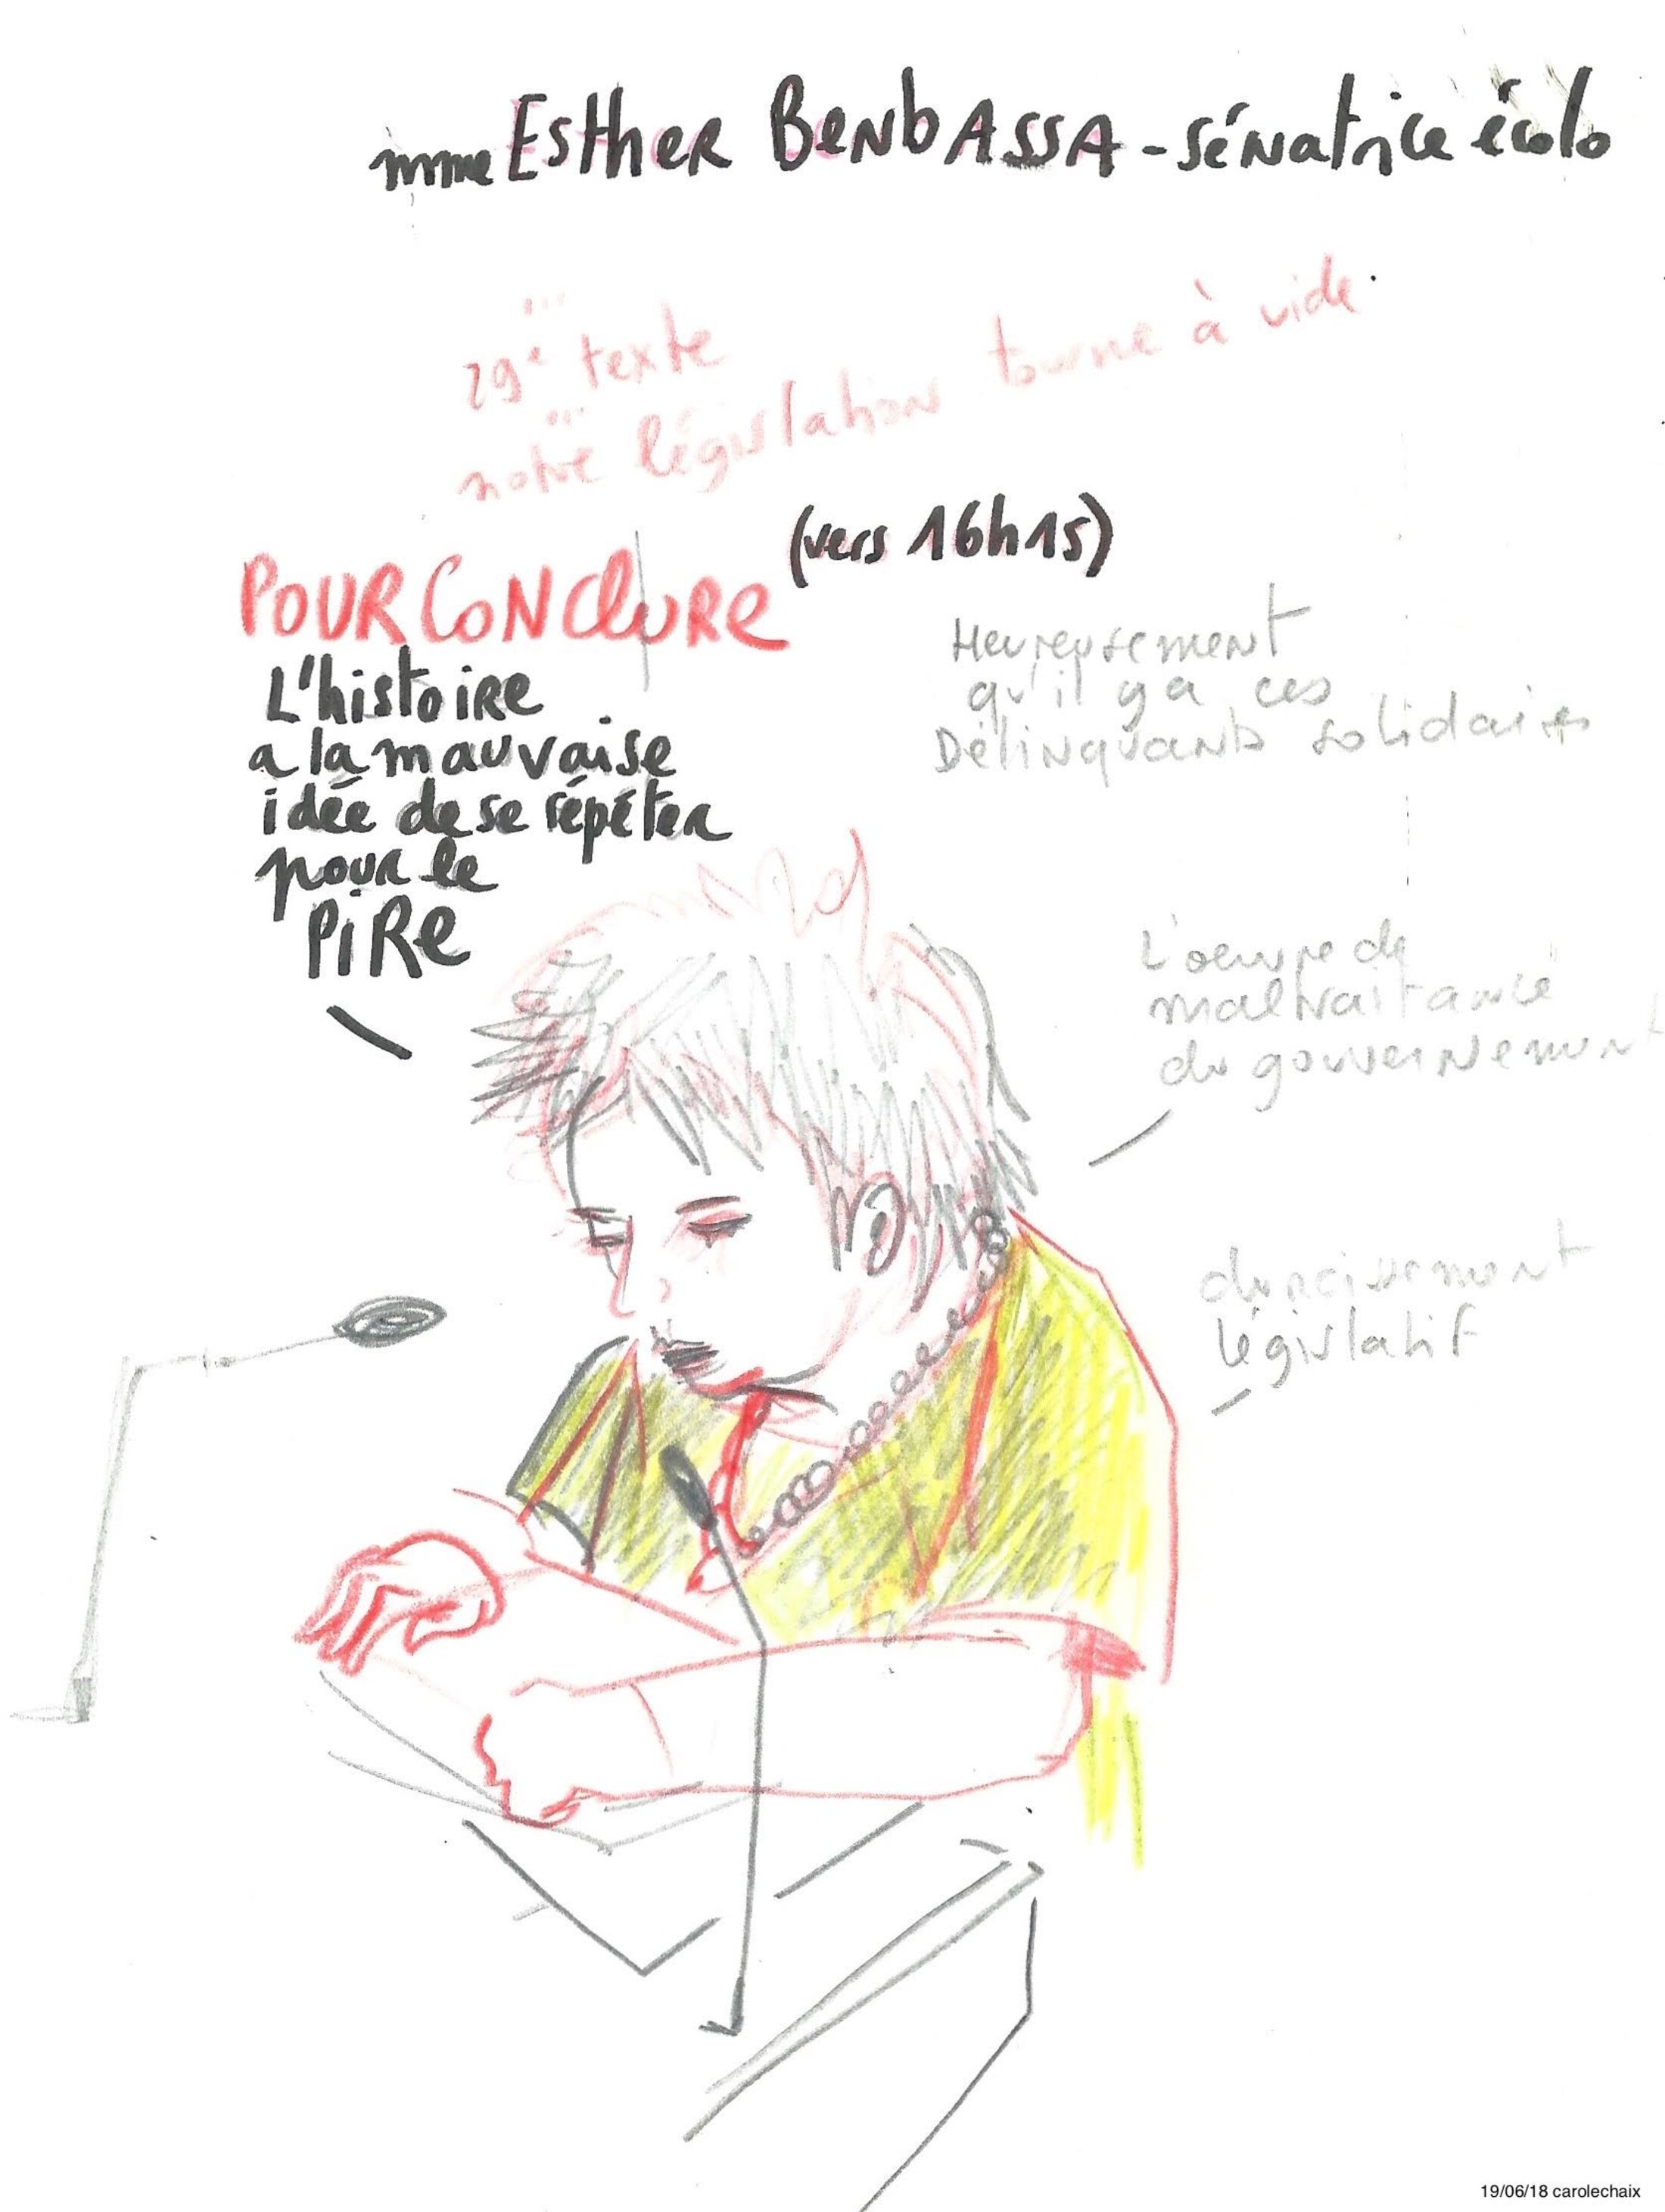 mme Esther BenbAssA - sénatrice écolo
...
29e texte
...
notre législation tourne à vide.
(vers 16h15)
POUR CONClURe
L'histoire
a la mauvaise
idée de se répéter
pour le
PiRe
Heureusement
qu'il y a ces
Délinquants solidaires
L'oeuvre de
maltraitance
du gouvernement
durcissement
législatif
19/06/18 carolechaix